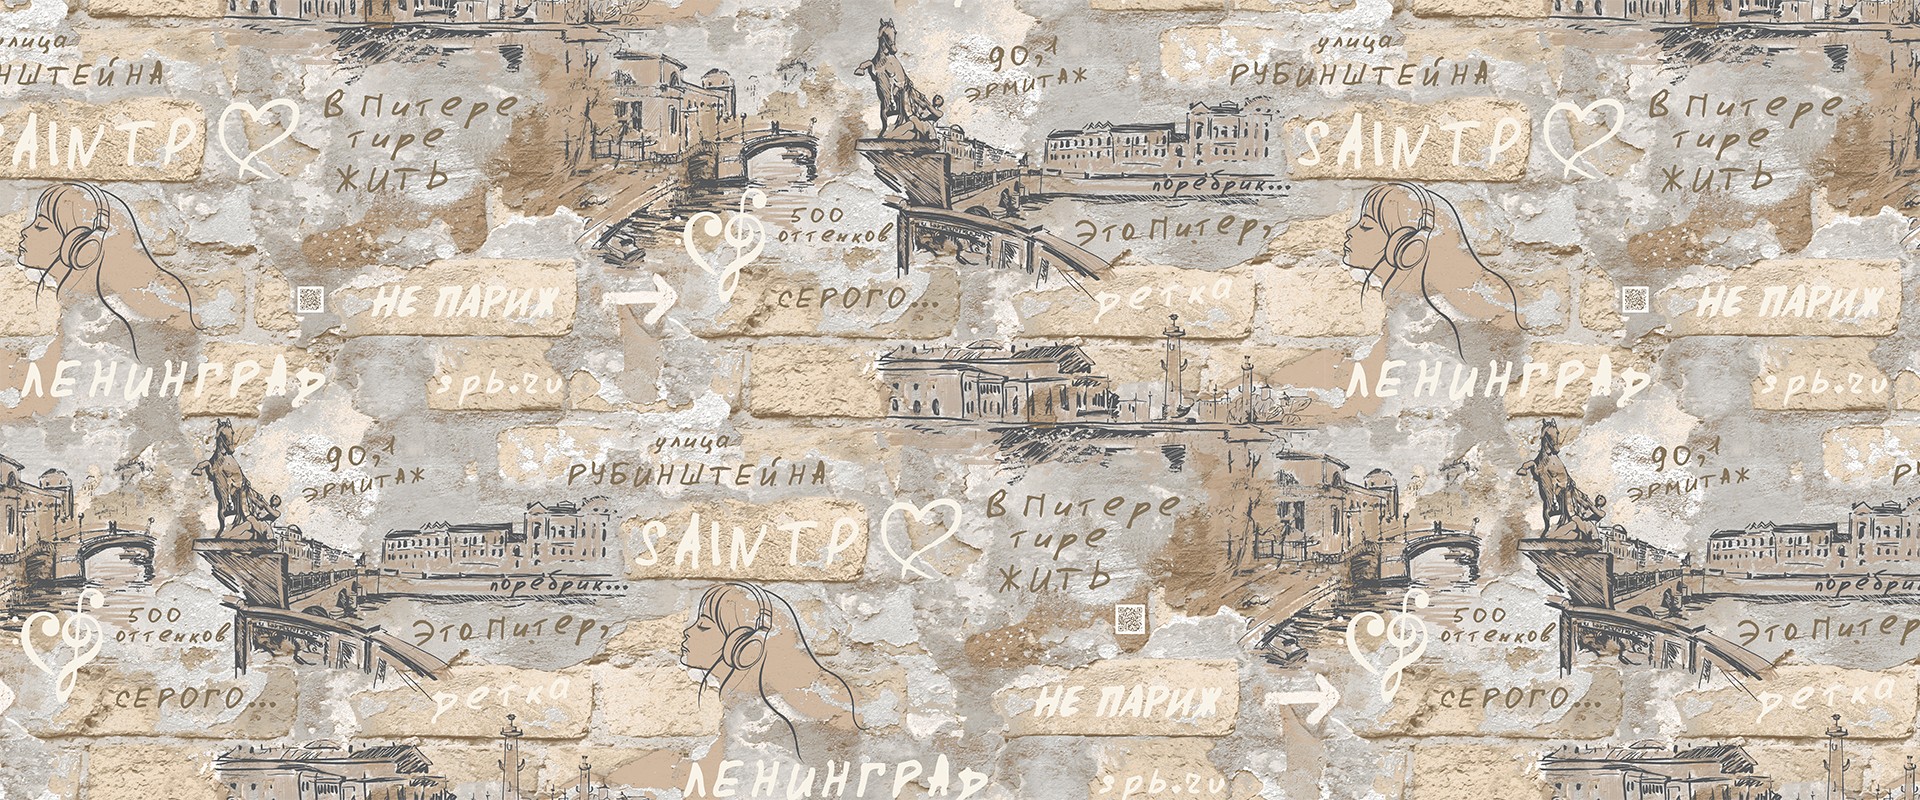 улица
НШТЕЙНА
90,1
ЭРМИТАЖ
улица
РУБИНШТЕЙНА
AINTP
В Питере
тире
ЖИТЬ
SAINTP
В Питере
тире
ЖИТЬ
поребрик...
500
оттенков
СЕРОГО...
Это Питер,
детка
НЕ ПАРИЖ
НЕ ПАРИЖ
ЛЕНИНГРАД
spb.ru
ЛЕНИНГРАД
spb.ru
90,1
ЭРМИТАЖ
улица
РУБИНШТЕЙНА
90,1
ЭРМИТАЖ
SAINTP
В Питере
тире
ЖИТЬ
поребрик...
поребрик
500
оттенков
СЕРОГО...
Это Питер,
детка
500
оттенков
СЕРОГО...
Это Питер
детка
НЕ ПАРИЖ
ЛЕНИНГРАД
spb.ru